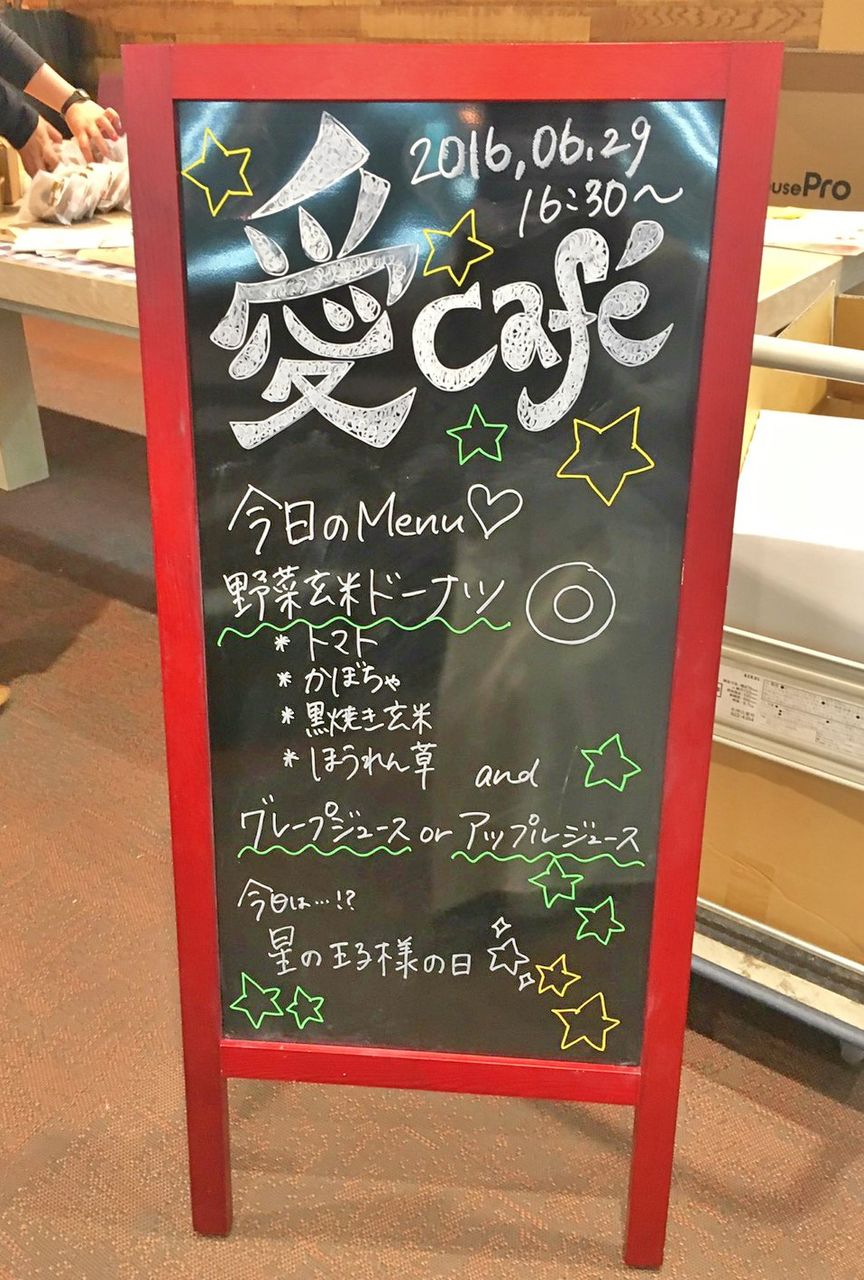 2016,06.29
16:30～
愛café
今日のMenu♡
野菜玄米ドーナツ
* トマト
* かぼちゃ
* 黒焼き玄米
* ほうれん草 and
グレープジュース or アップルジュース
今日は…!?
星の王子様の日
usePro